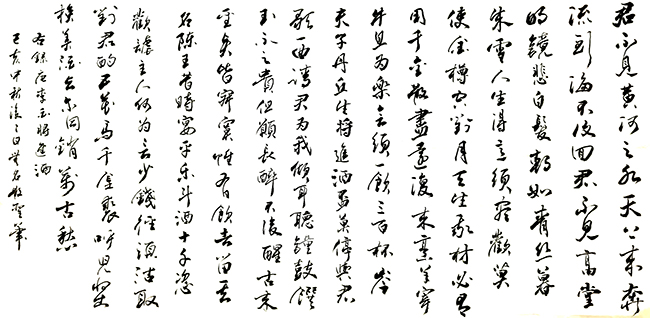 君不见黄河之水天上来奔
流到海不復回君不见高堂
明鏡悲白髮朝如青丝暮
成雪人生得意须尽歡莫
使金樽空對月天生我材必有
用千金散盡還復来烹羊宰
牛且为樂会须一飲三百杯岑
夫子丹丘生将進酒杯莫停與君
歌一曲請君为我倾耳聽鐘鼓饌
玉不足貴但願長醉不復醒古来
圣贤皆寂寞惟有飲者留其
名陈王昔時宴平乐斗酒十千恣
歡謔主人何为言少錢徑須沽取
對君酌五花馬千金裘呼兒将出
换美酒与尔同銷萬古愁
右錄唐李白将進酒